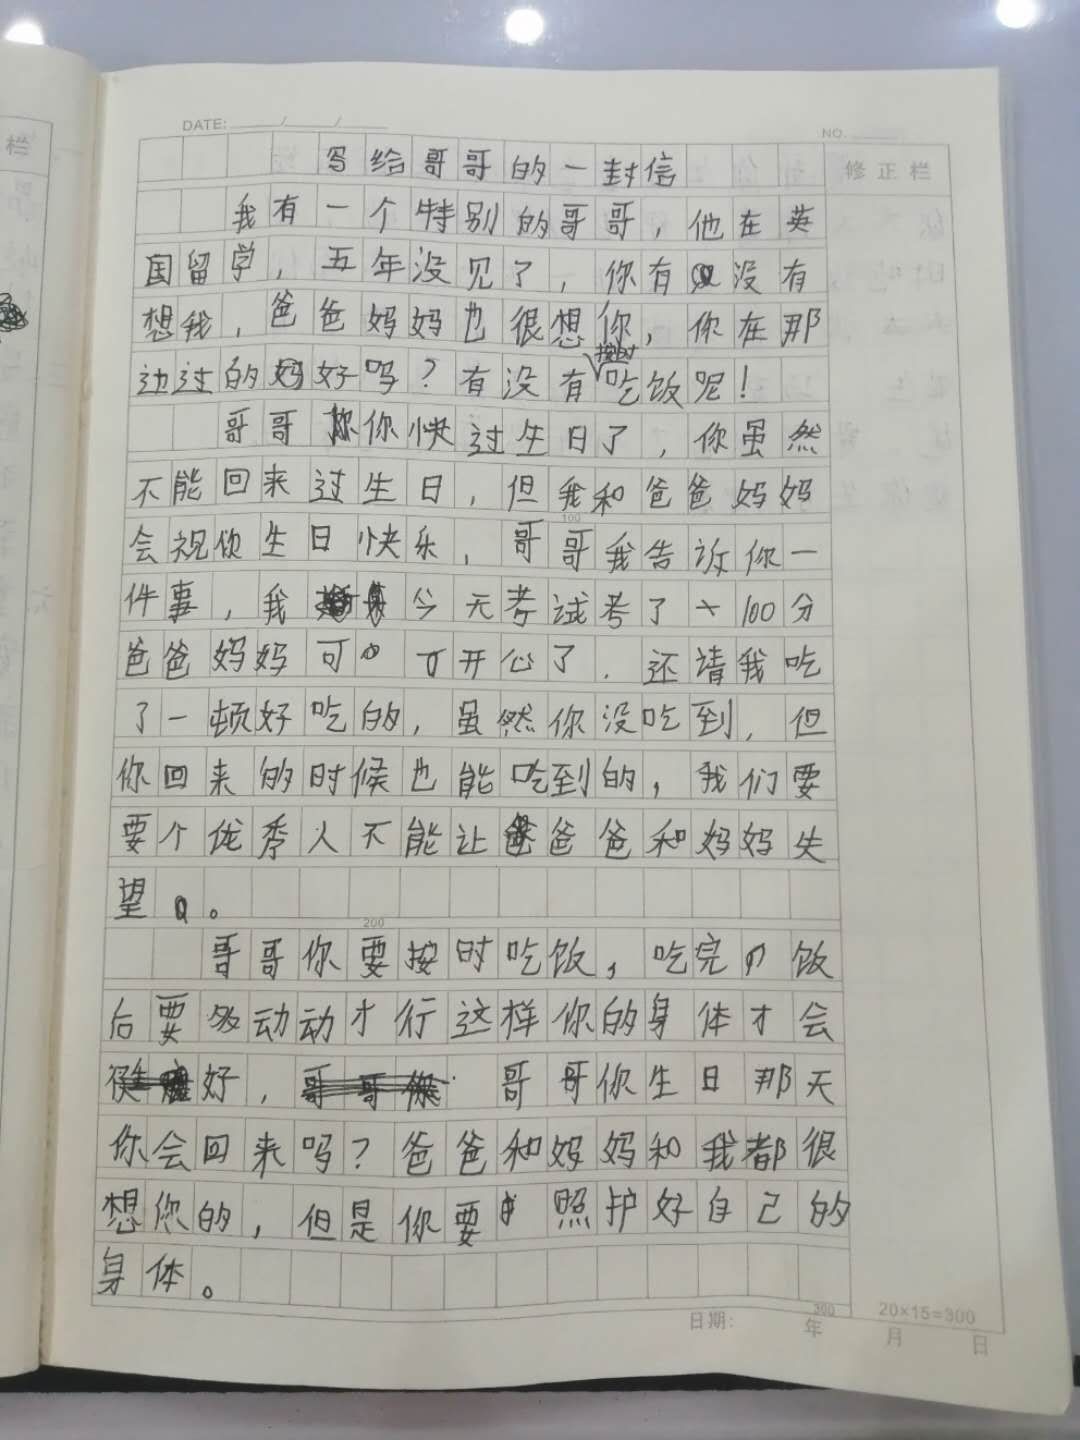 DATE: / /
NO.
写给哥哥的一封信
修正栏
我有一个特别的哥哥，他在英
国留学，五年没见了，你有没有
想我，爸爸妈妈也很想你，你在那
边过的好吗？有没有按时吃饭呢！
哥哥你快过生日了，你虽然
不能回来过生日，但我和爸爸妈妈
会祝你生日快乐，哥哥我告诉你一
100
件事，我今天考试考了100分
爸爸妈妈可开心了．还请我吃
了一顿好吃的，虽然你没吃到，但
你回来的时候也能吃到的，我们要
要个优秀人不能让爸爸和妈妈失
望。
200
哥哥你要按时吃饭，吃完饭
后要多动动才行这样你的身体才会
好，哥哥你生日那天
你会回来吗？爸爸和妈妈和我都很
想你的，但是你要照护好自己的
身体。
300
20×15=300
日期: 年 月 日
栏